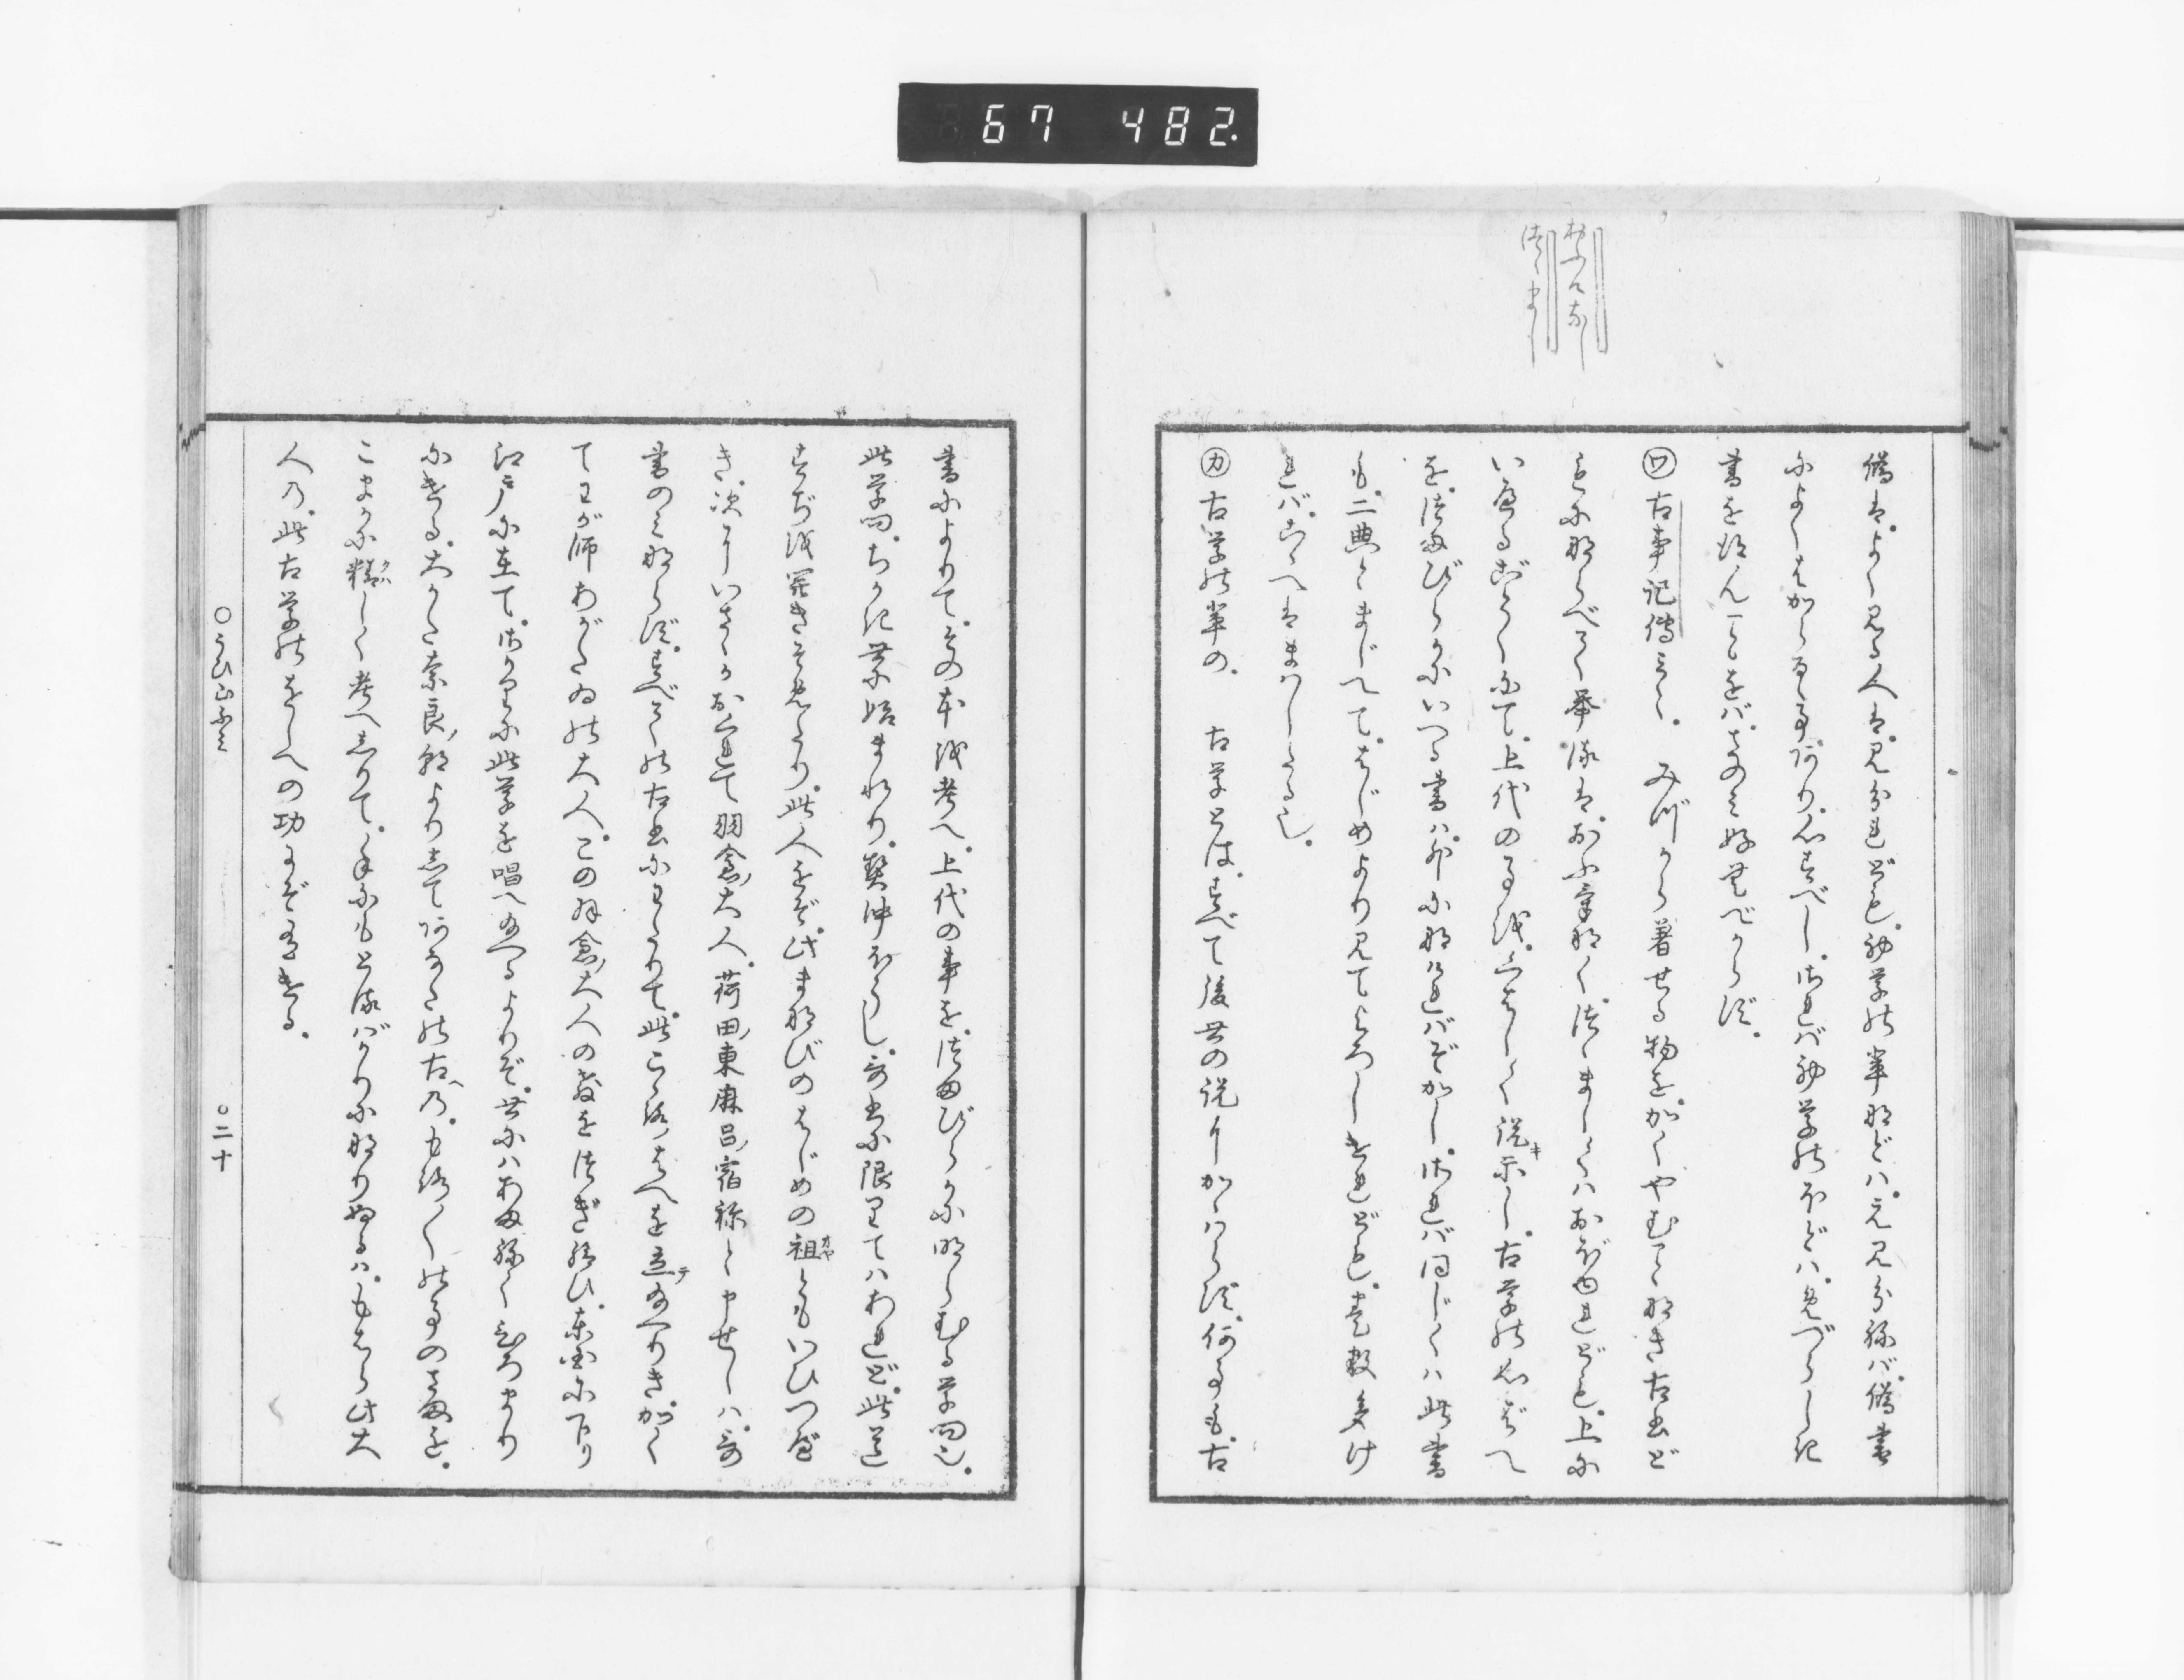 おふけなし
つゝまし
偽は、よく見る人は、見分れども、初学の輩などは、え見分ねば、偽書
によくはからるゝ事あり、心すべし、されば初学のほどは、めづらしき
書を得んことをば、さのみ好むべからず、
㋻古事記傳云々、　みづから著せる物を、かくやむことなき古書ど
もにならべて挙るは、おふけなく、つゝましくはおぼゆれども、上に
いへるごとくにて、上代の事を、くはしく説キ示し、古学の心ばへ
を、つまびらかにいへる書ハ、外になければぞかし、されば同じくハ此書
も、二典とまじへて、はじめより見てよろしけれども、巻数多け
れバ、こゝへはまハしたる也、
㋕古学の輩の、　古学とは、すべて後世の説にかゝハらず、何事も、古
書によりて、その本を考へ、上代の事を、つまびらかに明らむる学問也、
此学問、ちかき世に始まれり、契沖ほふし、哥書に限りてハあれど、此道
すぢを開きそめたり、此人をぞ、此まなびのはじめの祖ともいひつべ
き、次にいさゝかおくれて羽倉大人、荷田東麻呂宿祢と申せしハ、哥
書のみならず、すべての古書にわたりて、此こゝろばへを立テ給へりき、かく
てわが師あがたゐの大人、この羽倉大人の教をつぎ給ひ、東国に下り
江戸に在て、さかりに此学を唱へ給へるよりぞ、世にハあまねくひろまり
にける、大かた奈良ノ朝よりしてあなたの古への、もろ〳〵の事のさまを、
こまかに精しく考へしりて、手にもとるばかりになりぬるハ、もはら此大
人の、此古学のをしへの功にぞ有ける、
○うひ山ふミ　○二十
67 482.